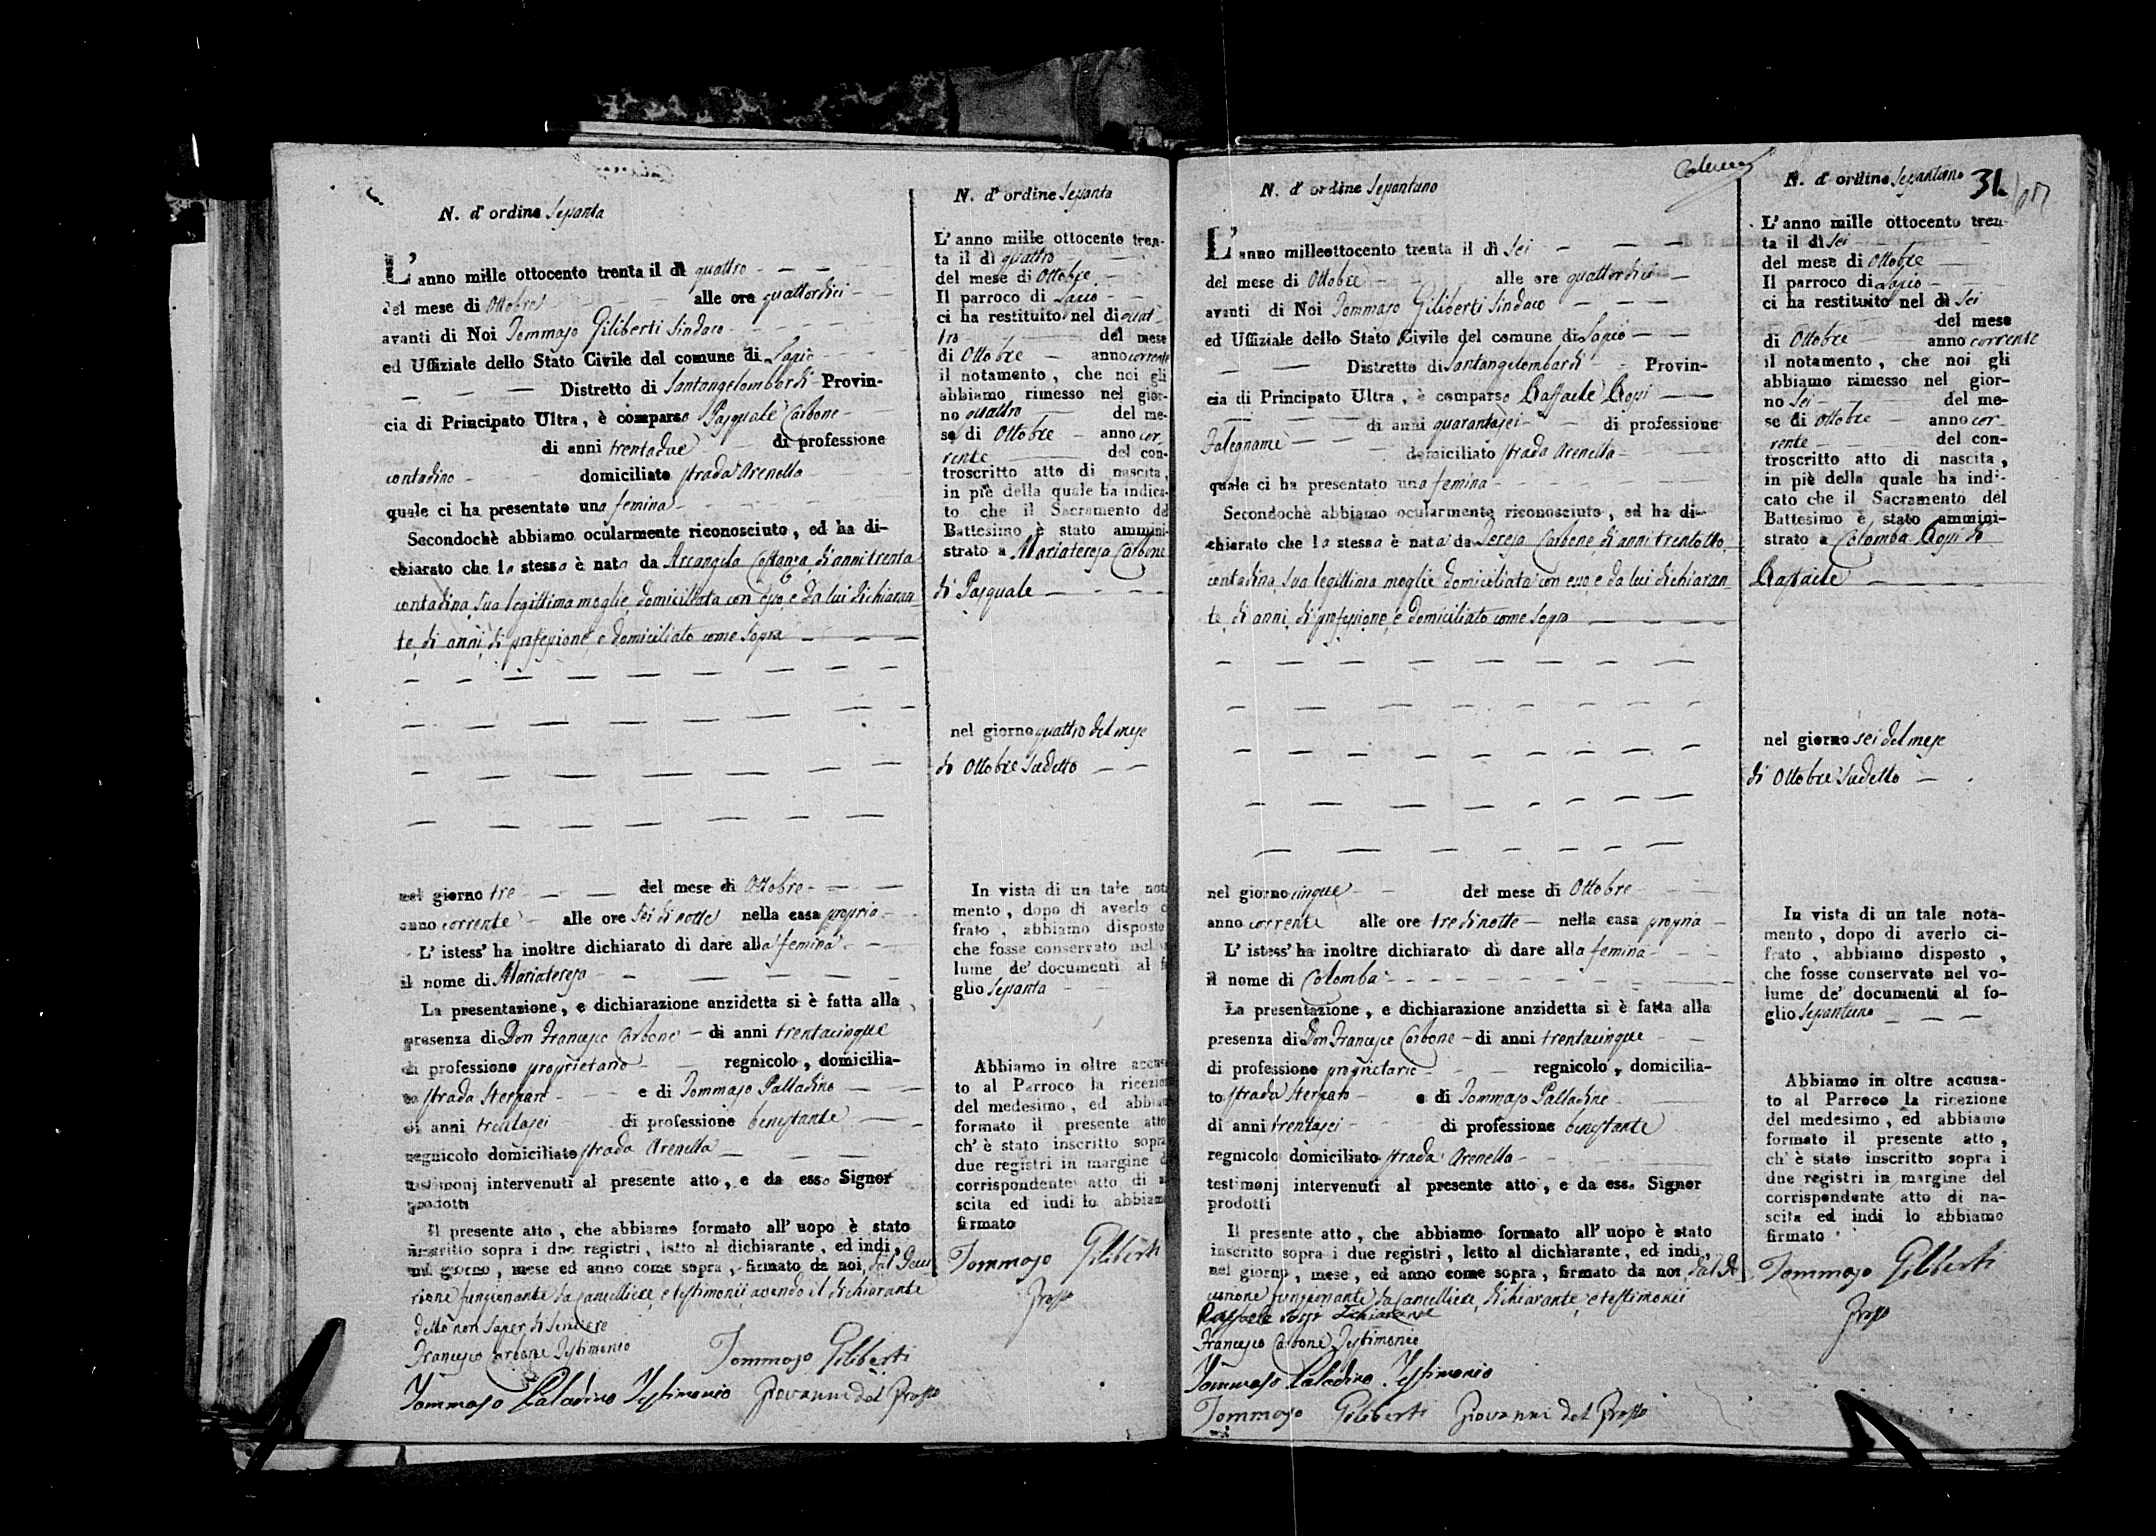 N. d'ordine Sessanta
L'anno mille ottocento trenta il dì quattro
del mese di Ottobre alle ore quattordici
avanti di Noi Tommaso Giliberti Sindaco
ed Uffiziale dello Stato Civile del comune di Lapio
Distretto di Santangelombardi Provin-
cia di Principato Ultra, è comparso Pasquale Carbone
di anni trentadue di professione
contadino domiciliato strada Arenella
quale ci ha presentato una femina
Secondochè abbiamo ocularmente riconosciuto, ed ha di-
chiarato che la stessa è nata da Arcangela Costanza, di anni trenta
contadina, sua legittima moglie, domiciliata con esso, e da lui dichiaran-
te, di anni, di professione, e domiciliato come sopra
nel giorno tre del mese di Ottobre
anno corrente alle ore sei di notte nella casa propria
L'istess' ha inoltre dichiarato di dare alla femina
il nome di Mariateresa
La presentazione, e dichiarazione anzidetta si è fatta alla
presenza di Don Francesco Carbone di anni trentacinque
di professione proprietario regnicolo, domicilia-
to strada Sterparo e di Tommaso Palladino
di anni trentasei di professione benestante
regnicolo domiciliato strada Arenella
testimonj intervenuti al presente atto, e da esso Signor
prodotti
Il presente atto, che abbiamo formato all'uopo è stato
inscritto sopra i due registri, letto al dichiarante, ed indi,
nel giorno, mese ed anno come sopra, firmato da noi, dal Decu
rione funzionante da Cancelliere, e testimonii avendo il dichiarante
detto non saper di scrivere
Francesco Carbone Testimonio
Tommaso Giliberti
Tommaso Paladino Testimonio Giovanni del Grosso
N. d'ordine Sessanta
L'anno mille ottocento tren-
ta il dì quattro
del mese di Ottobre
Il parroco di Lapio
ci ha restituito nel dì quat-
tro del mese
di Ottobre anno corrente
il notamento, che noi gli
abbiamo rimesso nel gior-
no quattro del me-
se di Ottobre anno cor-
rente del con-
troscritto atto di nascita,
in piè della quale ha indica-
to che il Sacramento del
Battesimo è stato ammini-
strato a Mariateresa Carbone
di Pasquale
nel giorno quattro del mese
di Ottobre sudetto
In vista di un tale not
mento, dopo di averlo c
frato, abbiamo disposto
che fosse conservato nel
lume de' documenti al f
glio sessanta
Abbiamo in oltre accusa
to al Parroco la ricezion
del medesimo, ed abbiam
formato il presente atto
ch' è stato inscritto sopra
due registri in margine d
corrispondente atto di
scita ed indi lo abbiam
firmato
Tommaso Giliberti
Grosso
N. d'ordine Sessantuno
L'anno milleottocento trenta il dì Sei
del mese di Ottobre alle ore quattordici
avanti di Noi Tommaso Giliberti Sindaco
ed Uffiziale dello Stato Civile del comune di Lapio
Distretto di Santangelombardi Provin-
cia di Principato Ultra, è comparso Raffaele Rossi
di anni quarantasei di professione
Falegname domiciliato strada Arenella
quale ci ha presentato una femina
Secondochè abbiamo ocularmente riconosciuto, ed ha di-
chiarato che la stessa è nata da Teresa Carbone, di anni trentotto,
contadina, sua legittima moglie domiciliata con esso, e da lui dichiaran-
te, di anni, di professione, e domiciliato come sopra
nel giorno cinque del mese di Ottobre
anno corrente alle ore tre di notte nella casa propria
L'istess' ha inoltre dichiarato di dare alla femina
il nome di Colomba
La presentazione, e dichiarazione anzidetta si è fatta alla
presenza di Don Francesco Carbone di anni trentacinque
di professione proprietario regnicolo, domicilia-
to strada Sterparo e di Tommaso Palladino
di anni trentasei di professione benestante
regnicolo domiciliato strada Arenella
testimonj intervenuti al presente atto, e da esso Signor
prodotti
Il presente atto, che abbiamo formato all'uopo è stato
inscritto sopra i due registri, letto al dichiarante, ed indi,
nel giorno, mese, ed anno come sopra, firmato da noi, dal De
curione funzionante da Cancelliere, dichiarante, e testimonii
Raffaele Rossi Dichiarante
Francesco Carbone Testimonio
Tommaso Paladino Testimonio
Tommaso Giliberti Giovanni del Grosso
N. d'ordine Sessantuno 31
L'anno mille ottocento tren-
ta il dì Sei
del mese di Ottobre
Il parroco di Lapio
ci ha restituito nel dì Sei
del mese
di Ottobre anno corrente
il notamento, che noi gli
abbiamo rimesso nel gior-
no Sei del me-
se di Ottobre anno cor-
rente del con-
troscritto atto di nascita,
in piè della quale ha indi-
cato che il Sacramento del
Battesimo è stato ammini-
strato a Colomba Rossi di
Raffaele
nel giorno sei del mese
di Ottobre sudetto
In vista di un tale nota-
mento, dopo di averlo ci-
frato, abbiamo disposto,
che fosse conservato nel vo-
lume de' documenti al fo-
glio sessantuno
Abbiamo in oltre accusa-
to al Parroco la ricezione
del medesimo, ed abbiamo
formato il presente atto,
ch' è stato inscritto sopra i
due registri in margine del
corrispondente atto di na-
scita ed indi lo abbiamo
firmato
Tommaso Giliberti
Grosso